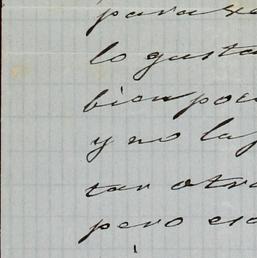 para
lo gusta
bien poc
y no la
tar otra
pero es